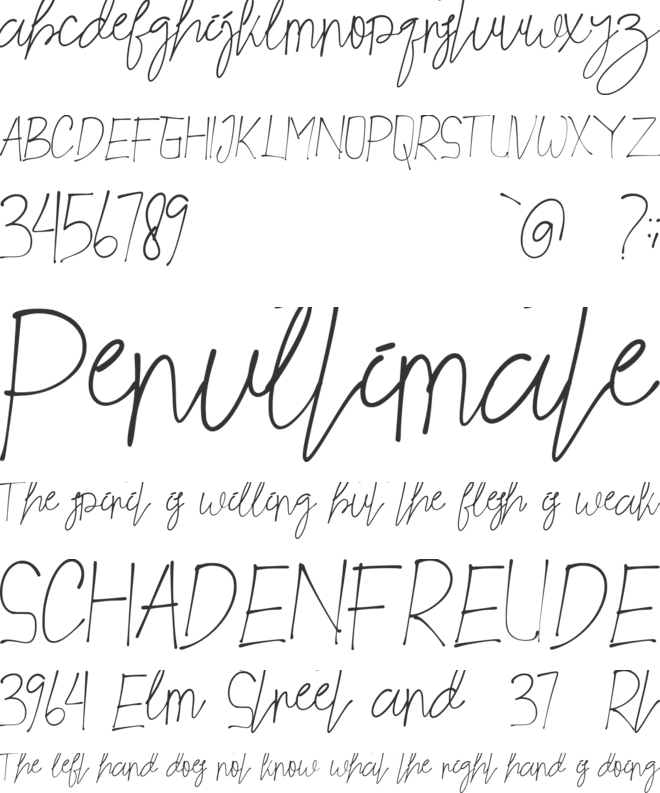 abcdefghijklmnopqrstuvwxyz
ABCDEFGHIJKLMNOPQRSTUVWXYZ
3456789 `@ ?:;
Penultimate
The spirit is willing but the flesh is weak
SCHADENFREUDE
3964 Elm Street and 37 Rt
The left hand does not know what the right hand is doing